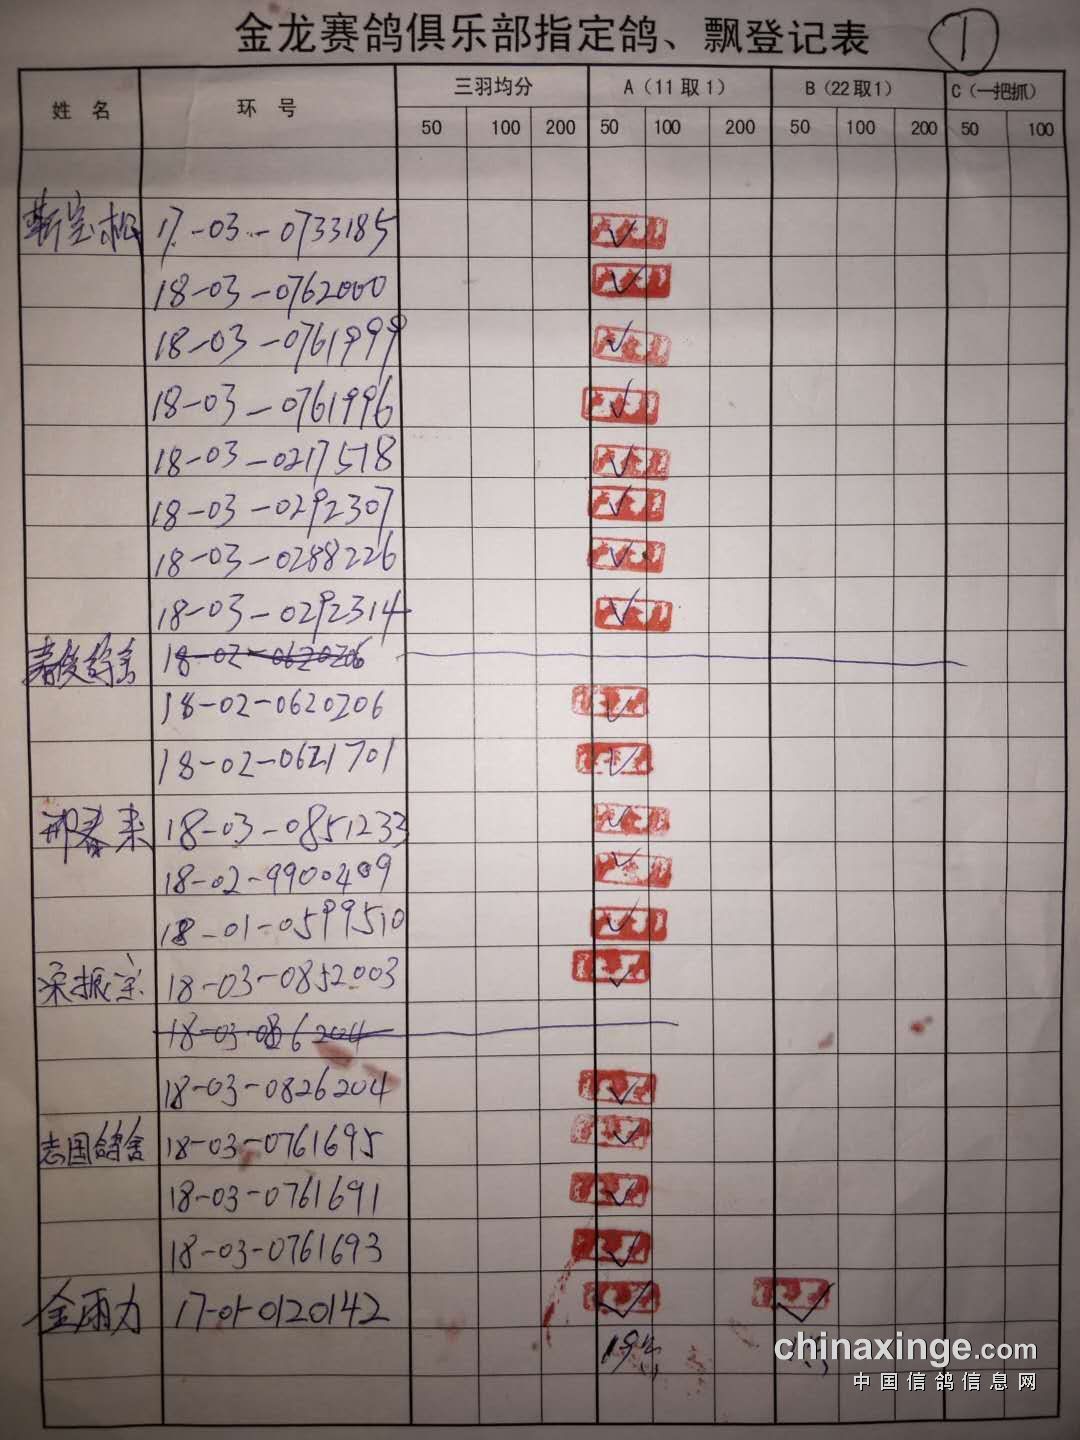 金龙赛鸽俱乐部指定鸽、飘登记表 ①
姓 名 环 号 三羽均分 A(11取1) B(22取1) C(一把抓)
50 100 200 50 100 200 50 100 200 50 100
靳宝松 17-03-0733185 ✓
18-03-0762000 ✓
18-03-0761999 ✓
18-03-0761996 ✓
18-03-0217518 ✓
18-03-0292307 ✓
18-03-0288226 ✓
18-03-0292314 ✓
鸽舍 18-02-0620206
18-02-0620206 ✓
18-02-0621701 ✓
邢春来 18-03-0851233 ✓
18-02-9900409 ✓
18-01-0599510 ✓
梁振宗 18-03-0852003 ✓
18-03-0826204
18-03-0826204 ✓
志国鸽舍 18-03-0761695 ✓
18-03-0761691 ✓
18-03-0761693 ✓
金雨力 17-01-0120142 ✓ ✓
19
chinaxinge.com
中国信鸽信息网